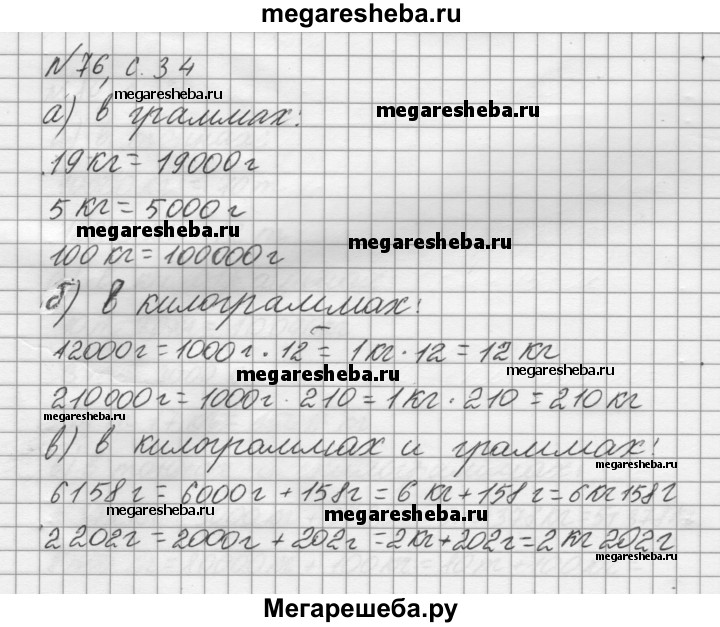 megaresheba.ru
№76, с. 34
megaresheba.ru
megaresheba.ru
а) в граммах:
19кг = 19000г
5 кг = 5000 г
megaresheba.ru
megaresheba.ru
100 кг = 100000г
б) в килограммах:
12000г = 1000г · 12 = 1кг · 12 = 12 кг
megaresheba.ru
megaresheba.ru
210000г = 1000г · 210 = 1кг · 210 = 210 кг
megaresheba.ru
в) в килограммах и граммах:
megaresheba.ru
6158г = 6000г + 158г = 6 кг + 158 г = 6кг 158г
megaresheba.ru
megaresheba.ru
2202г = 2000г + 202г = 2кг + 202г = 2 кг 202 г
megaresheba.ru
Мегарешеба.ру